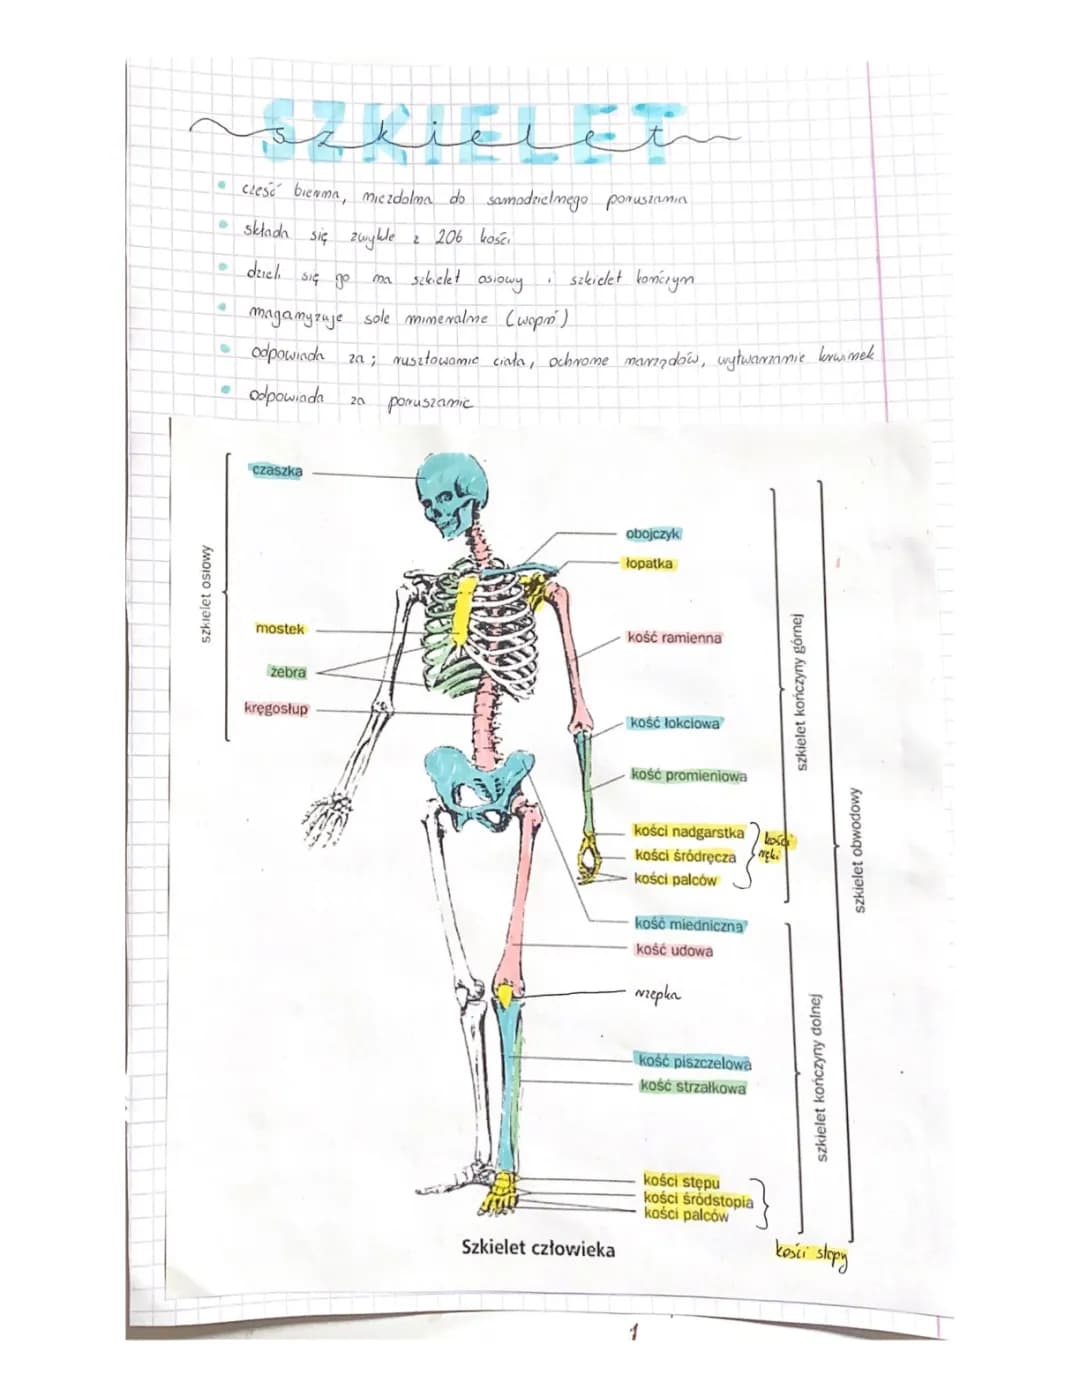 SZKIELET
szkielet
część bierna, niezdolna do samodzielnego poruszania
składa się zwykle z 206 kości
dzieli się go na szkielet osiowy i szkielet kończyn
magazynuje sole mineralne (wapń)
odpowiada za; rusztowanie ciała, ochronę narządów, wytwarzanie krwinek
odpowiada za poruszanie
szkielet osiowy
czaszka
mostek
żebra
kręgosłup
obojczyk
łopatka
kość ramienna
kość łokciowa
kość promieniowa
kości nadgarstka
kości śródręcza
kości palców
kości
ręki
szkielet kończyny górnej
szkielet obwodowy
kość miedniczna
kość udowa
rzepka
kość piszczelowa
kość strzałkowa
szkielet kończyny dolnej
kości stępu
kości śródstopia
kości palców
kości stopy
Szkielet człowieka
1